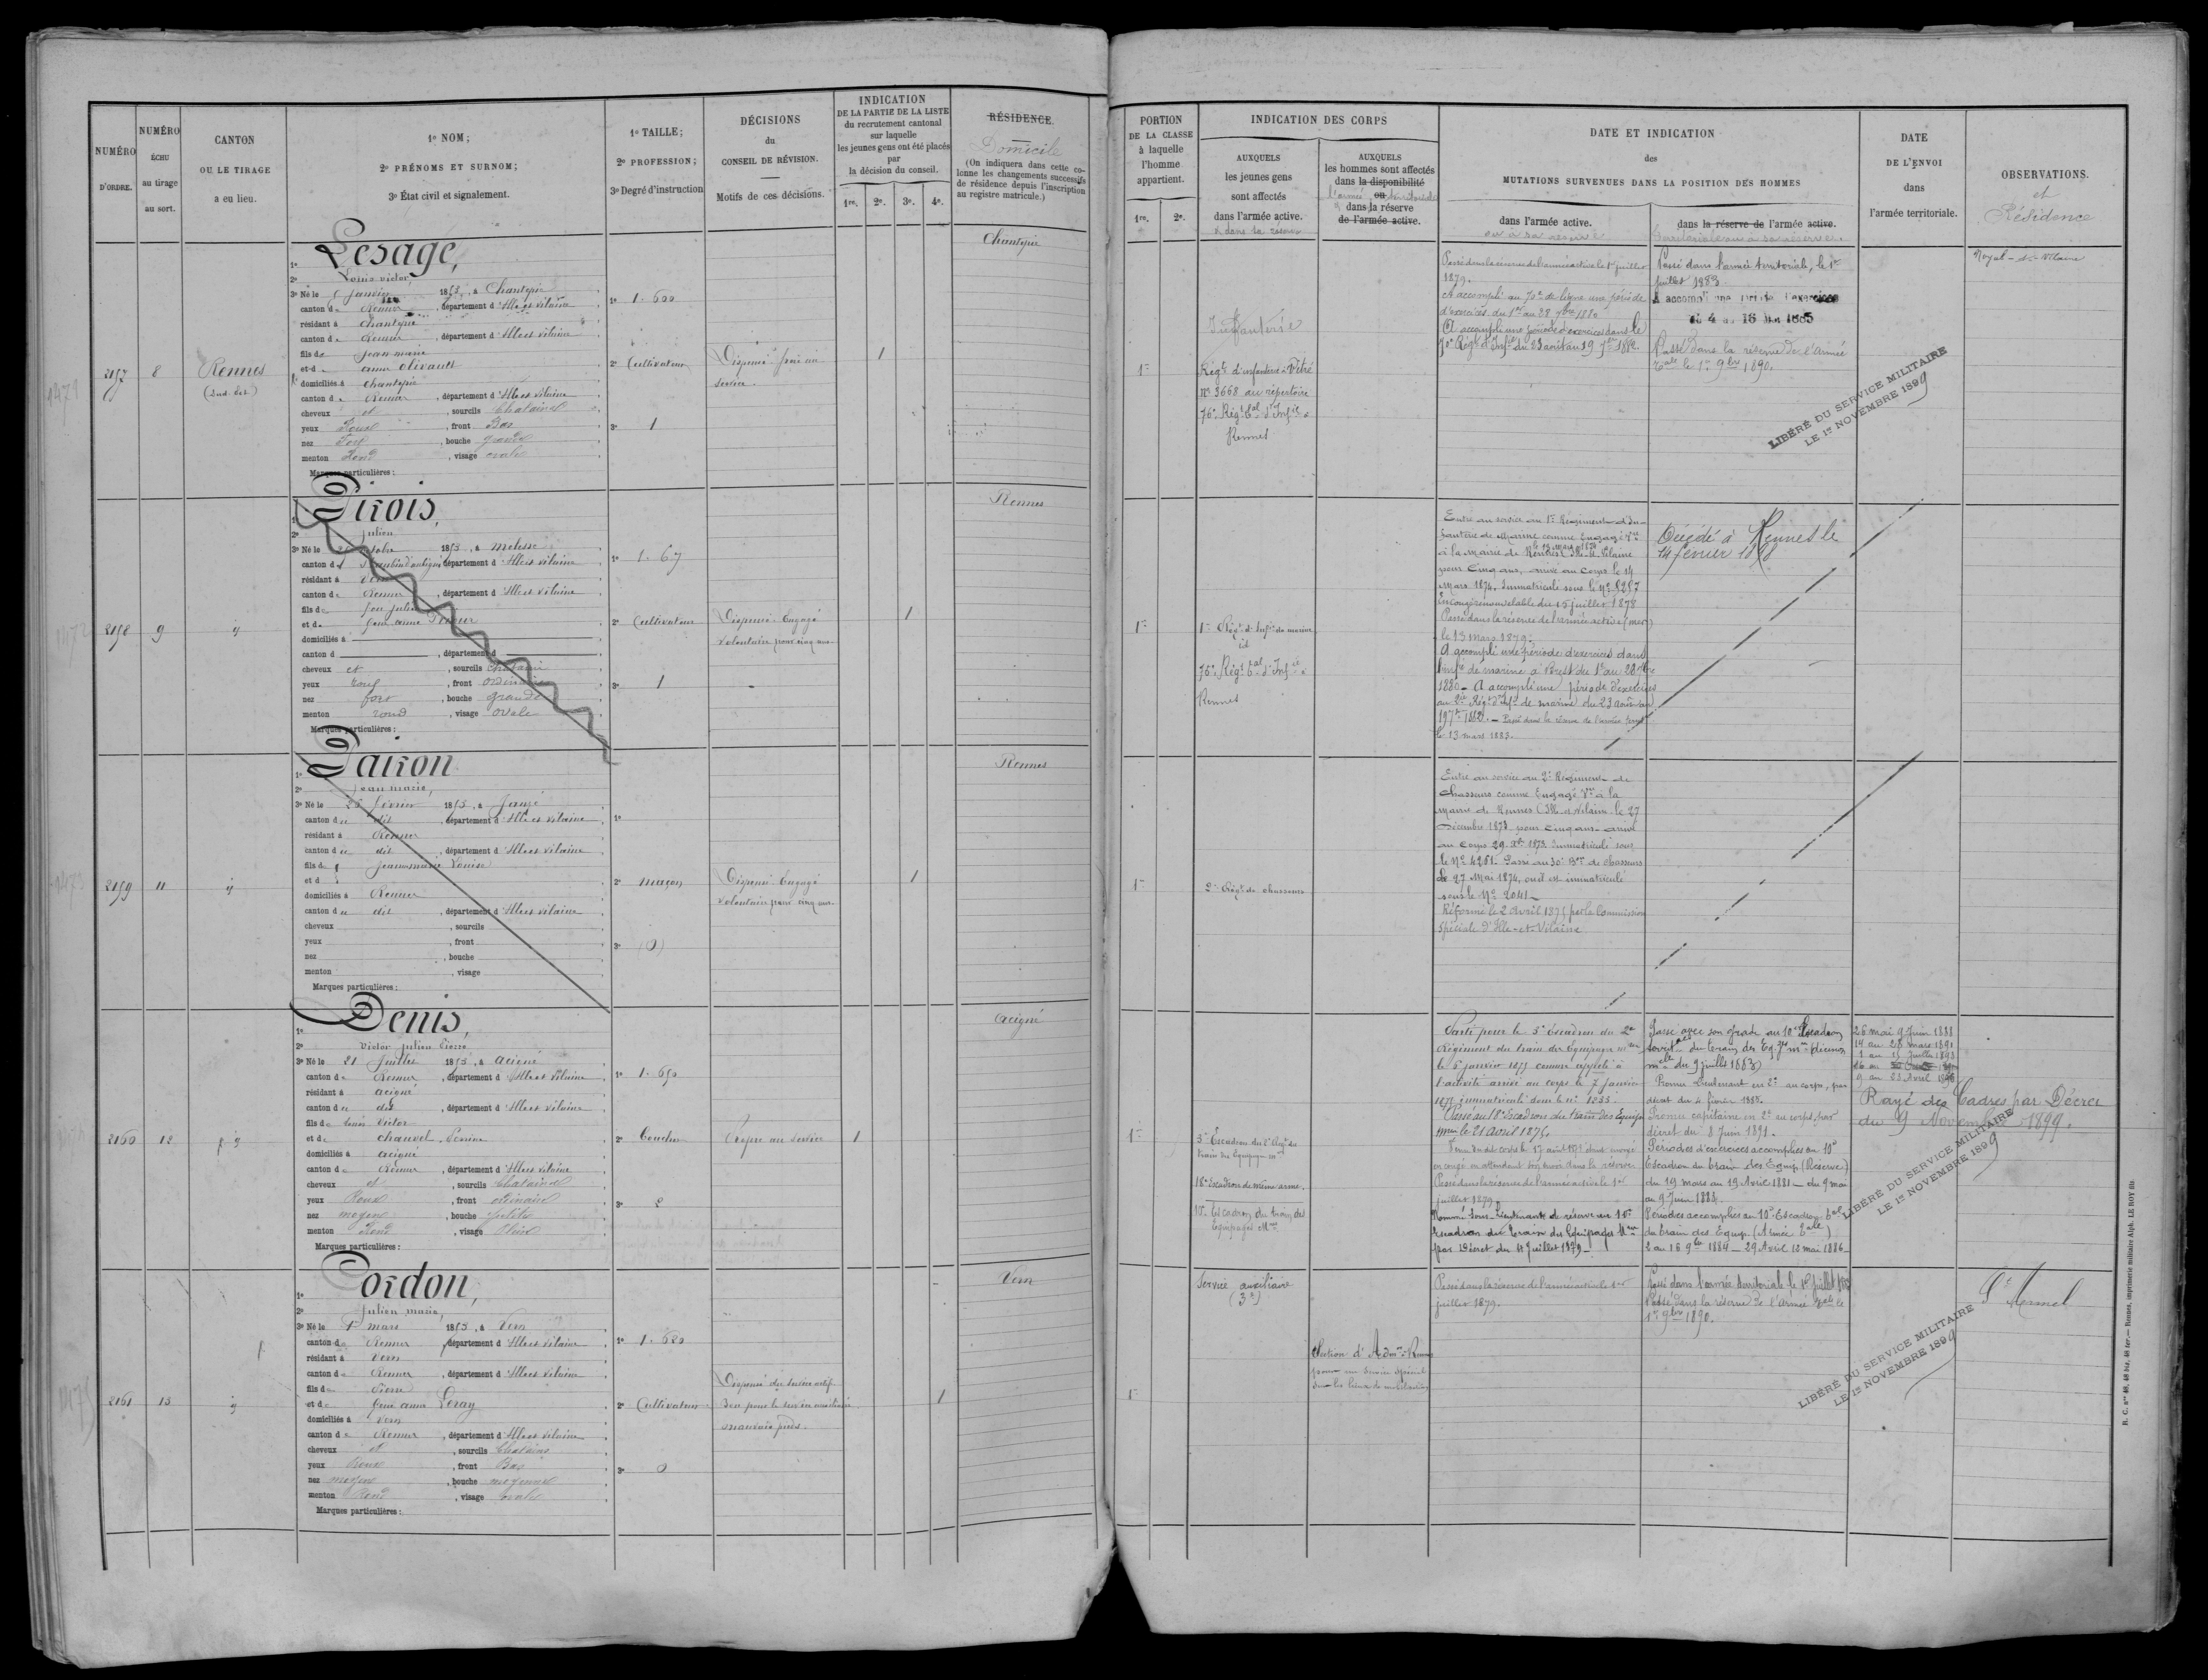 NUMÉRO
D'ORDRE.
NUMÉRO
ÉCHU
au tirage
au sort.
CANTON
OU LE TIRAGE
a eu lieu.
1º NOM;
2º PRÉNOMS ET SURNOM;
3º État civil et signalement.
1º TAILLE;
2º PROFESSION;
3º Degré d'instruction
DÉCISIONS
du
CONSEIL DE RÉVISION.
Motifs de ces décisions.
INDICATION
DE LA PARTIE DE LA LISTE
du recrutement cantonal
sur laquelle
les jeunes gens ont été placés
par
la décision du conseil.
1re. 2e. 3e. 4e.
RÉSIDENCE.
Domicile
(On indiquera dans cette co-
lonne les changements successifs
de résidence depuis l'inscription
au registre matricule.)
PORTION
DE LA CLASSE
à laquelle
l'homme
appartient.
1re. 2e.
INDICATION DES CORPS
AUXQUELS
les jeunes gens
sont affectés
dans l'armée active.
& dans la réserve
AUXQUELS
les hommes sont affectés
dans la disponibilité
ou
l'armée territoriale
dans la réserve
de l'armée active.
DATE ET INDICATION
des
MUTATIONS SURVENUES DANS LA POSITION DES HOMMES
dans l'armée active.
ou à sa réserve
dans la réserve de l'armée active.
territoriale ou à sa réserve.
DATE
DE L'ENVOI
dans
l'armée territoriale.
OBSERVATIONS.
et
Résidence
2157
8
Rennes
(Sud-Est)
1º Lesage,
2º Louis Victor,
3º Né le janvier 1853, à Chantepie
canton de Rennes, département d'Ille et Vilaine
résidant à Chantepie
canton de Rennes, département d'Ille et Vilaine
fils de Jean Marie
et d anne olivault
domiciliés à Chantepie
canton de Rennes, département d'Ille et Vilaine
cheveux et, sourcils Chatains
yeux Roux, front Bas
nez Fort, bouche grande
menton Rond, visage ovale
Marques particulières:
1º 1.600
2º Cultivateur
3º 1
Dispensé frère au
service.
1
Chantepie
1re
Infanterie
Régt. d'infanterie à Vitré
No 3668 au répertoire
76e Régt tal d'Infie à
Rennes
Passé dans la réserve de l'armée active le 1er juillet
1879.
A accompli au 70e de ligne une période
d'exercices du 1er au 28 7bre 1880
A accompli une période d'exercices dans le
70e Régt d'Infie du 23 août au 19 7bre 1882.
Passé dans l'armée territoriale, le 1er
juillet 1883.
A accompli une période d'exercices
du 4 au 16 Mai 1885
Passé dans la réserve de l'Armée
tale le 1er 9bre 1890.
LIBÉRÉ DU SERVICE MILITAIRE
LE 1er NOVEMBRE 1899
Noyal-s-Vilaine
2158
9
id
1º Pirois,
2º Julien
3º Né le octobre 1853, à Melesse
canton de St aubin d'aubigné département d'Ille et Vilaine
résidant à Vern
canton de Rennes, département d'Ille et Vilaine
fils de feu Julien
et de feue anne
domiciliés à
canton d, département d
cheveux et, sourcils chatains
yeux roux, front ordinaire
nez fort, bouche grande
menton rond, visage ovale
Marques particulières:
1º 1.67
2º Cultivateur
3º 1
Dispensé Engagé
volontaire pour cinq ans.
1
Rennes
1re
1er Régt d'Infie de marine
id
76e Régt tal d'Infie à
Rennes
Entré au service au 1er Régiment d'In-
fanterie de Marine comme Engagé Vre
le 13 mars 1874
à la mairie de Rennes Ille-et-Vilaine
pour Cinq ans, arrivé au corps le 14
Mars 1874. Immatriculé sous le No 5257
En congé renouvelable du 15 juillet 1878
Passé dans la réserve de l'armée active (mer)
le 13 mars 1879.
A accompli une période d'exercices dans
l'infie de marine à Brest du 1er au 28 7bre
1880 - A accompli une période d'exercices
au 2e Régt d'Infie de marine du 23 août au
19 7bre 1882. - Passé dans la réserve de l'armée terre
le 13 mars 1883.
Décédé à Rennes le
14 février 1898
2159
11
id
1º Pairon
2º Jean Marie,
3º Né le 26 février 1853, à Janzé
canton du dit, département d'Ille et Vilaine
résidant à Rennes
canton du dit, département d'Ille et Vilaine
fils de Jeanne Marie Louise
et d
domiciliés à Rennes
canton du dit, département d'Ille et Vilaine
cheveux, sourcils
yeux, front
nez, bouche
menton, visage
Marques particulières:
1º
2º maçon
3º (0)
Dispensé Engagé
volontaire pour cinq ans.
1
Rennes
1re
2e Régt de chasseurs
Entré au service au 2e Régiment de
chasseurs comme Engagé Vre à la
mairie de Rennes (Ille-et-Vilaine) le 27
Décembre 1873 pour cinq ans - arrivé
au Corps 29 Xbre 1873. Immatriculé sous
le No 4261 - Passé au 30e Bon de chasseurs
le 27 Mai 1874, où il est immatriculé
sous le No 2041
Réformé le 2 avril 1875 par la Commission
spéciale d'Ille-et-Vilaine
2160
12
id
1º Denis,
2º Victor Julien Pierre
3º Né le 21 Juillet 1853, à Acigné
canton de Rennes, département d'Ille et Vilaine
résidant à acigné
canton du dit, département d'Ille et Vilaine
fils de Victor
et de Chauvel Perrine
domiciliés à acigné
canton de Rennes, département d'Ille et Vilaine
cheveux et, sourcils Chatains
yeux Roux, front ordinaire
nez moyen, bouche petite
menton Rond, visage Plein
Marques particulières:
1º 1.650
2º Boucher
3º 2
Propre au service
1
Acigné
1re
3e Escadron du 2e Régt du
train des Equipages mres
18e Escadron de même arme.
10e Escadron du train des
Equipages Mres
Parti pour le 3e Escadron du 2e
Régiment du train des Equipages mres
le 6 janvier 1875 comme appelé à
l'activité arrivé au corps le 7 janvier
1875 immatriculé sous le no 1233.
Passé au 18e Escadron du train des Equip.
mres le 21 avril 1875.
en congé en attendant son envoi dans la réserve
Passé dans la réserve de l'armée active le 1er
juillet 1879.
Nommé Sous-Lieutenant de réserve au 10e
Escadron du train des Equipages Mres
par Décret du 4 juillet 1879.
Passé avec son grade au 10e Escadron
territal du train des Eq. mres (décision
mlle du 9 juillet 1883)
Promu Lieutenant en 2e au corps, par
décret du 4 février 1885.
Promu capitaine en 2e au corps, par
décret du 8 Juin 1891.
Périodes d'exercices accomplies au 10e
Escadron du train des Equip. (Réserve)
du 19 mars au 19 Avril 1881 - du 9 mai
au 9 Juin 1883.
Périodes accomplies au 10e Escadron tal
du train des Equip. (Armée tale)
2 au 16 9bre 1884 - 29 Avril 12 mai 1886.
26 mai 9 Juin 1888
14 au 28 mars 1891
1 au 15 Juillet 1893
9 au 23 Avril 1896
Rayé des Cadres par Décret
du 9 Novembre 1899.
LIBÉRÉ DU SERVICE MILITAIRE
LE 1er NOVEMBRE 1899
2161
13
id
1º Cordon,
2º Julien Marie,
3º Né le mars 1853, à Vern
canton de Rennes, département d'Ille et Vilaine
résidant à Vern
canton de Rennes, département d'Ille et Vilaine
fils de Pierre
et de feue anne Leray
domiciliés à Vern
canton de Rennes, département d'Ille et Vilaine
cheveux et, sourcils Chatains
yeux Roux, front Bas
nez moyen, bouche moyenne
menton Rond, visage ovale
Marques particulières:
1º 1.620
2º Cultivateur
3º 0
Dispensé du service actif
Bon pour le service auxiliaire
mauvais pieds.
1
Vern
1re
Service auxiliaire
(3e)
Section d'Admon Rennes
pour un service spécial
Passé dans la réserve de l'armée active le 1er
juillet 1879.
Passé dans l'armée territoriale le 1er juillet 1883
Passé dans la réserve de l'Armée tale le
1er 9bre 1890.
LIBÉRÉ DU SERVICE MILITAIRE
LE 1er NOVEMBRE 1899
St Armel